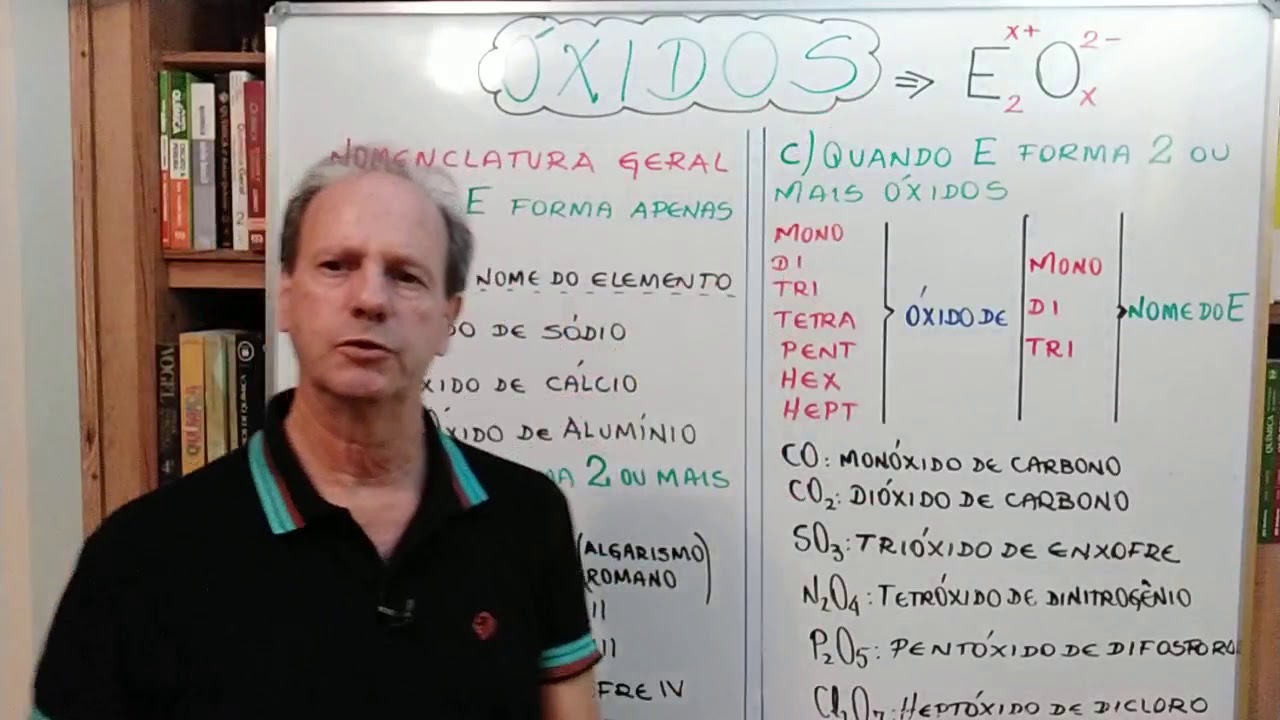 ÓXIDOS ⇒ E₂ˣ⁺Oₓ²⁻
NOMENCLATURA GERAL
E FORMA APENAS
NOME DO ELEMENTO
DO DE SÓDIO
XIDO DE CÁLCIO
ÓXIDO DE ALUMÍNIO
MA 2 OU MAIS
(ALGARISMO
ROMANO)
II
III
OFRE IV
C) QUANDO E FORMA 2 OU
MAIS ÓXIDOS
MONO
DI
TRI
TETRA
PENT
HEX
HEPT
ÓXIDO DE
MONO
DI
TRI
NOME DO E
CO: MONÓXIDO DE CARBONO
CO₂: DIÓXIDO DE CARBONO
SO₃: TRIÓXIDO DE ENXOFRE
N₂O₄: TETRÓXIDO DE DINITROGÊNIO
P₂O₅: PENTÓXIDO DE DIFÓSFORO
Cl₂O₇: HEPTÓXIDO DE DICLORO
VOGEL
QUÍMICA